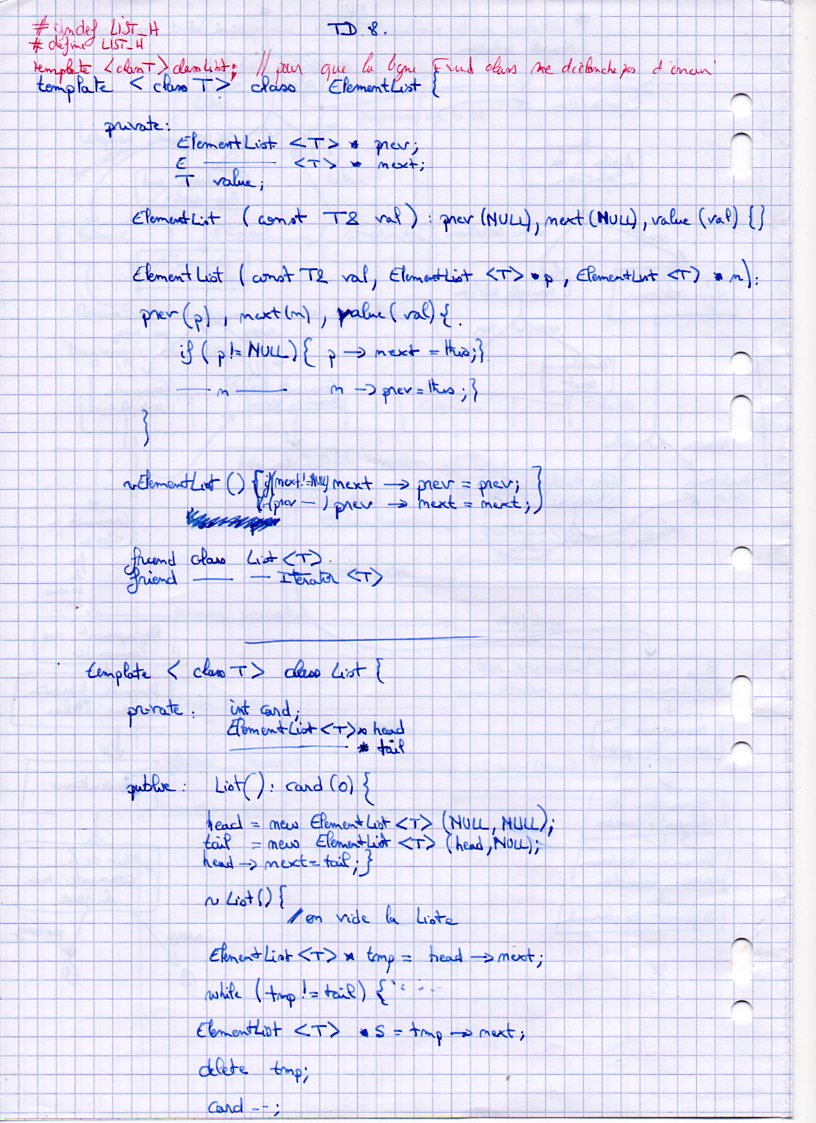 TD 8.
# ifndef LIST_H
# define LIST_H
template <class T> class List; // pour que la ligne Friend class ne déclenche pas d'erreur
template < class T > class ElementList {
private:
ElementList <T> * prev;
E ——— <T> * next;
T value;
ElementList ( const T& val ) : prev (NULL), next (NULL), value (val) {}
ElementList ( const T& val, ElementList <T> * p , ElementList <T> * n):
prev (p) , next (n) , value ( val) {
if ( p != NULL) { p -> next = this; }
— n — n -> prev = this ; }
}
~ElementList () { if (next != NULL) next -> prev = prev;
(prev — ) prev -> next = next; }
friend class List <T>
friend —— — Iterator <T>
template < class T > class List {
private : int card;
ElementList <T> * head
——— * tail
public : List() : card (0) {
head = new ElementList <T> (NULL, NULL);
tail = new ElementList <T> (head, NULL);
head -> next = tail; }
~ List() {
// on vide la liste
ElementList <T> * tmp = head -> next;
while ( tmp != tail) {
ElementList <T> * s = tmp -> next;
delete tmp;
card --;